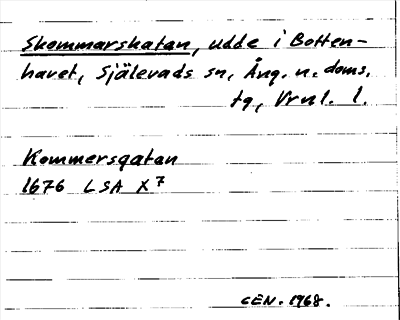 Skommarskatan, udde i Botten-
havet, Själevads sn, Ång. n. doms.
tg, Vrnl. l.
Kommersgatan
1676 LSA X7
CEN. 1968.